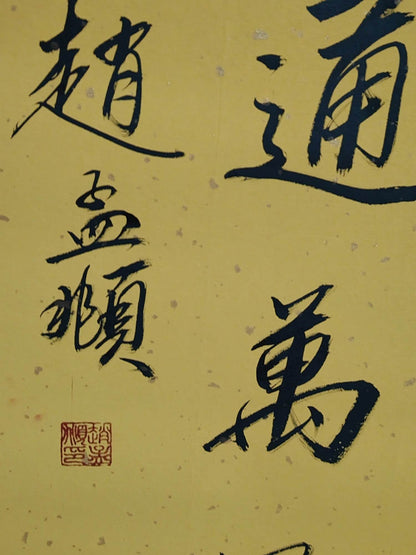 通萬
趙孟頫
趙孟頫印